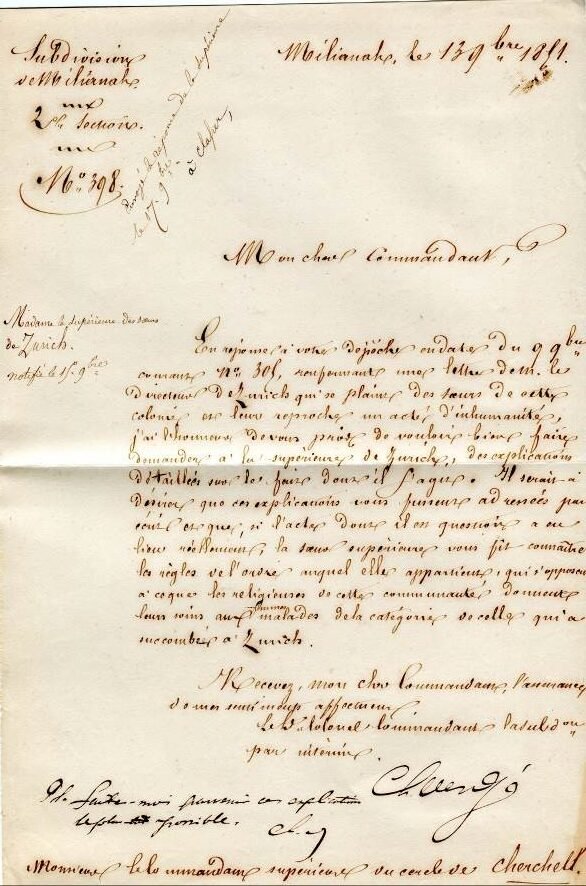 Subdivision
de Milianah
2e Section.
No 398.
Envoyé la réponse de la supérieure
le 17 9bre
à classer,
Milianah, le 13 9bre 1851.
Mon cher Commandant,
Madame la supérieure des sœurs
de Zurich.
notifié le 15 9bre
En réponse à votre dépêche en date du 9 9bre
courant No 305, renfermant une lettre de m. le
directeur de Zurich qui se plaint des sœurs de cette
colonie et leur reproche un acte d'inhumanité,
j'ai l'honneur de vous prier de vouloir bien faire
demander à la supérieure de Zurich, des explications
détaillées sur le fait dont il s'agit. Il serait à
désirer que ces explications vous fussent adressées par
écrit et que, si l'acte dont il est question a eu
lieu réellement, la sœur supérieure vous fit connaître
les règles de l'ordre auquel elle appartient, qui s'opposent
à ce que les religieuses de cette communauté donnent
leurs soins aux femmes malades de la catégorie de celle qui a
succombé à Zurich.
Recevez, mon cher Commandant, l'assurance
de mes sentiments affectueux
Le Lt Colonel Commandant la subdon
par intérim.
Ps. Faites-moi parvenir ces explications
le plus tôt possible.
Monsieur le Commandant supérieur du cercle de Cherchell.